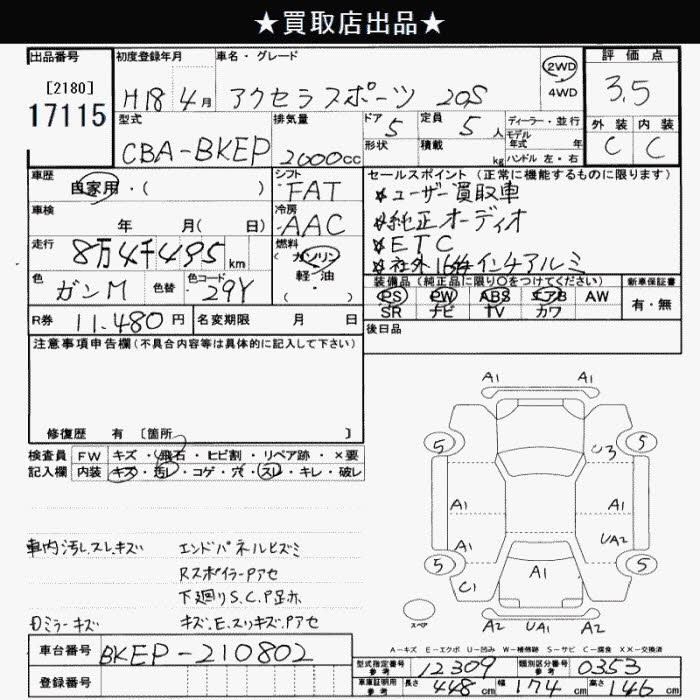 ★買取店出品★
出品番号
[2180]
17115
初度登録年月
H18 4月
車名・グレード
アクセラスポーツ 20S
2WD
4WD
評価点
3.5
外装 内装
C C
型式
CBA-BKEP
排気量
2000cc
ドア 5
形状
定員 5人
積載 kg
ディーラー・並行
モデル年式 年
ハンドル 左・右
車歴
自家用・( )
シフト
FAT
車検
年 月( 日)
冷房
AAC
走行
8万4千495km
燃料
(ガソリン
軽・油)
色
ガンM
色替
色コード
29Y
R券 11,480円
名変期限 月 日
セールスポイント(正常に機能するものに限ります)
★ユーザー買取車
★純正オーディオ
★ETC
★社外16インチアルミ
装備品(純正品に限り○をつけてください)
PS PW ABS エアB AW
SR ナビ TV カワ
新車保証書
有・無
後日品
注意事項申告欄(不具合内容等は具体的に記入して下さい)
修復歴 有 〔箇所 〕
検査員記入欄
FW キズ・飛石・ヒビ割・リペア跡・×要
内装 キズ・汚レ・コゲ・穴・スレ・キレ・破レ
車内汚レスレキズ
エンドパネルヒズミ
Rスポイラーアセ
下廻りS.C.P足赤
ミラーキズ
キズ.E.スリキズ.アセ
A1 A1
5 5
U3
A1 A1
A1 UA2
5 5
A1
C1
スペア
A2 UA1 A2
A-キズ E-エクボ U-凹み W-補修跡 S-サビ C-腐食 XX-交換済
車台番号
BKEP-210802
登録番号
型式指定番号 参考
12309
類別区分番号 参考
0353
車庫証明用 参考
長さ 448cm 幅 174cm 高さ 146cm